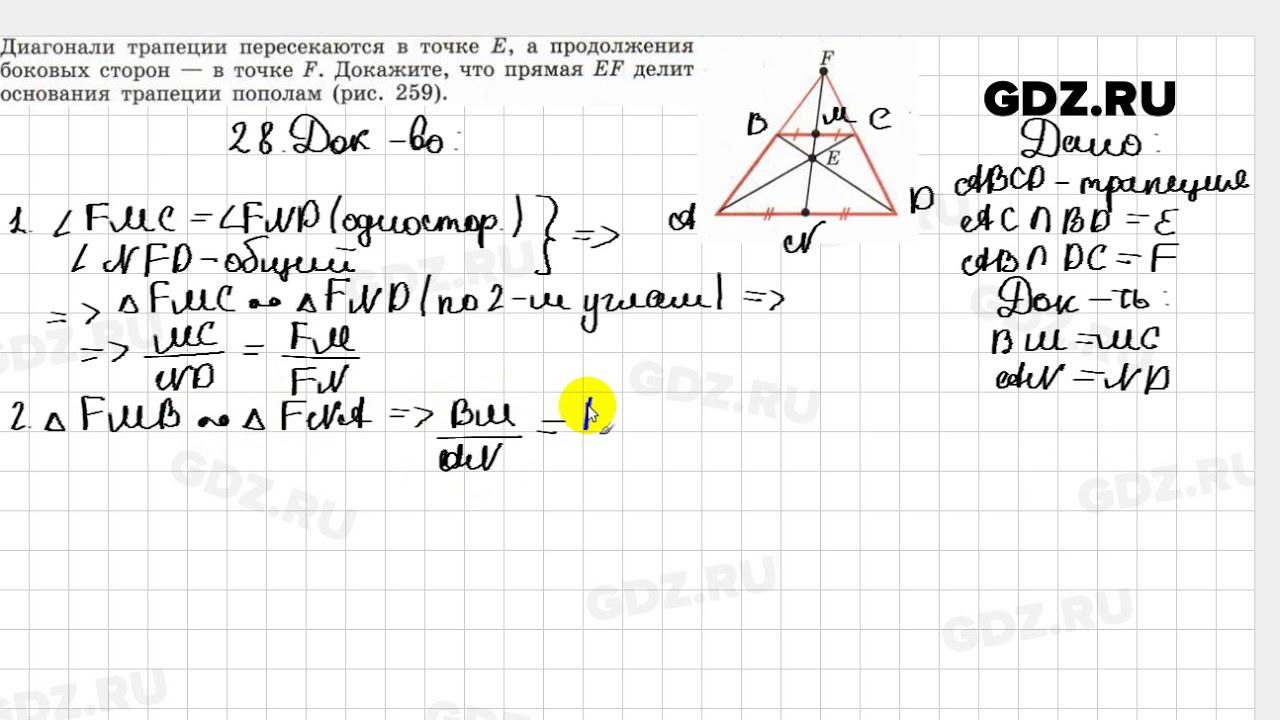 Диагонали трапеции пересекаются в точке E, а продолжения
боковых сторон — в точке F. Докажите, что прямая EF делит
основания трапеции пополам (рис. 259).
28. Док-во:
1. ∠FMC = ∠FND (одностор.) } =>
∠NFD - общий
=> △FMC ∾ △FND (по 2-м углам) =>
=> MC/ND = FM/FN
2. △FMB ∾ △FNA => BM/AN =
F
B
M
C
E
A
N
D
GDZ.RU
Дано:
ABCD - трапеция
AC ∩ BD = E
AB ∩ DC = F
Док-ть:
BM = MC
AN = ND
GDZ.RU
GDZ.RU
GDZ.RU
GDZ.RU
GDZ.RU
GDZ.RU
GDZ.RU
GDZ.RU
GDZ.RU
GDZ.RU